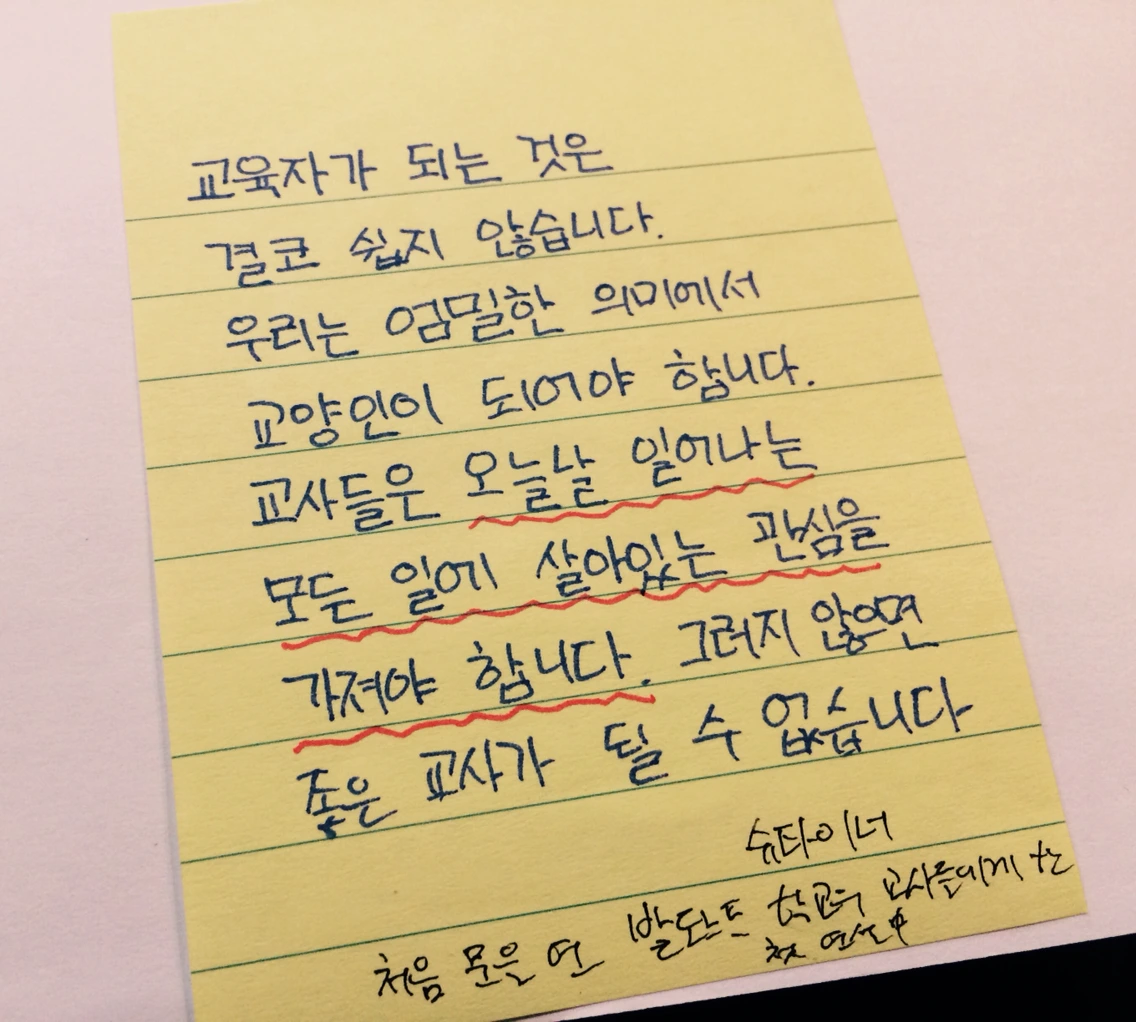 교육자가 되는 것은
결코 쉽지 않습니다.
우리는 엄밀한 의미에서
교양인이 되어야 합니다.
교사들은 오늘날 일어나는
모든 일에 살아있는 관심을
가져야 합니다. 그러지 않으면
좋은 교사가 될 수 없습니다
슈타이너
처음 문을 연 발도르프 학교의 교사들에게 한
첫 연설 中